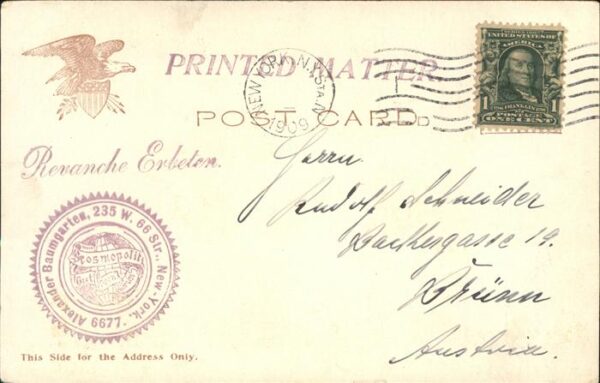 PRINTED MATTER.
SERIES 1902
UNITED STATES OF AMERICA
FRANKLIN
POSTAGE
1 ONE CENT 1
NEW YORK, N.Y. STA. N
1909
POST CARD
D
Revanche Erbeten.
Herrn
Rudolf Schneider
Backergasse 19.
Brünn
Austria.
Alexander Baumgarten, 235 W. 66 Str., New-York.
Cosmopolit
6677.
This Side for the Address Only.